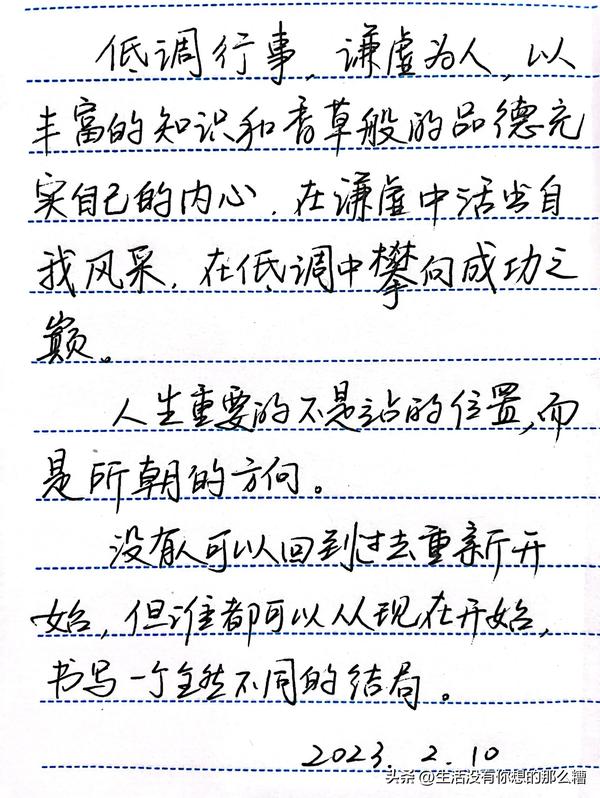 低调行事，谦虚为人，以
丰富的知识和香草般的品德充
实自己的内心，在谦虚中活出自
我风采，在低调中攀向成功之
巅。
人生重要的不是站的位置，而
是所朝的方向。
没有人可以回到过去重新开
始，但谁都可以从现在开始，
书写一个全然不同的结局。
2023.2.10
头条 @生活没有你想的那么糟